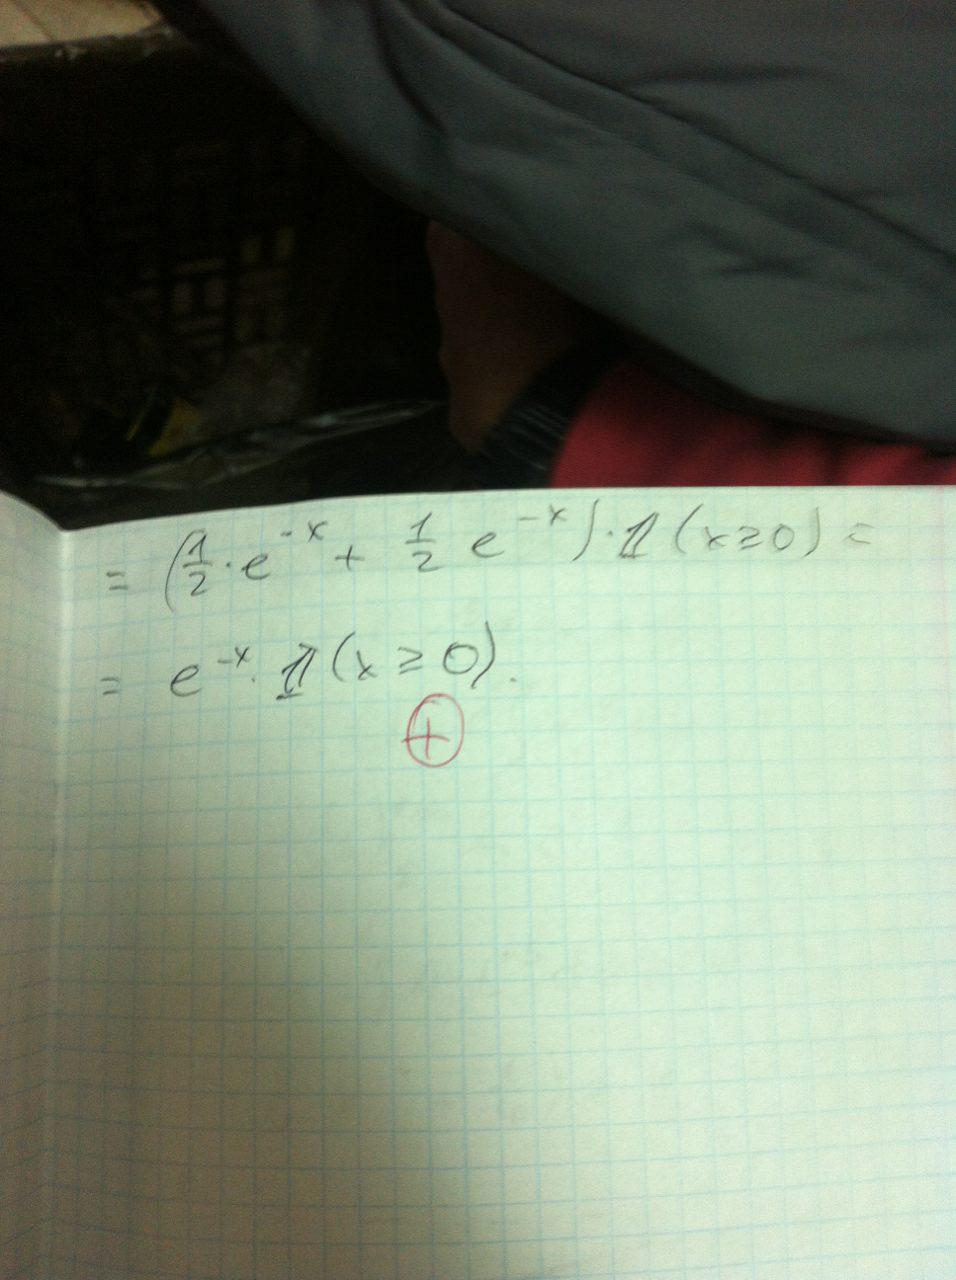 = (1/2 · e^{-x} + 1/2 e^{-x}) · 𝟙 (x ≥ 0) =
= e^{-x} · 𝟙 (x ≥ 0).
+